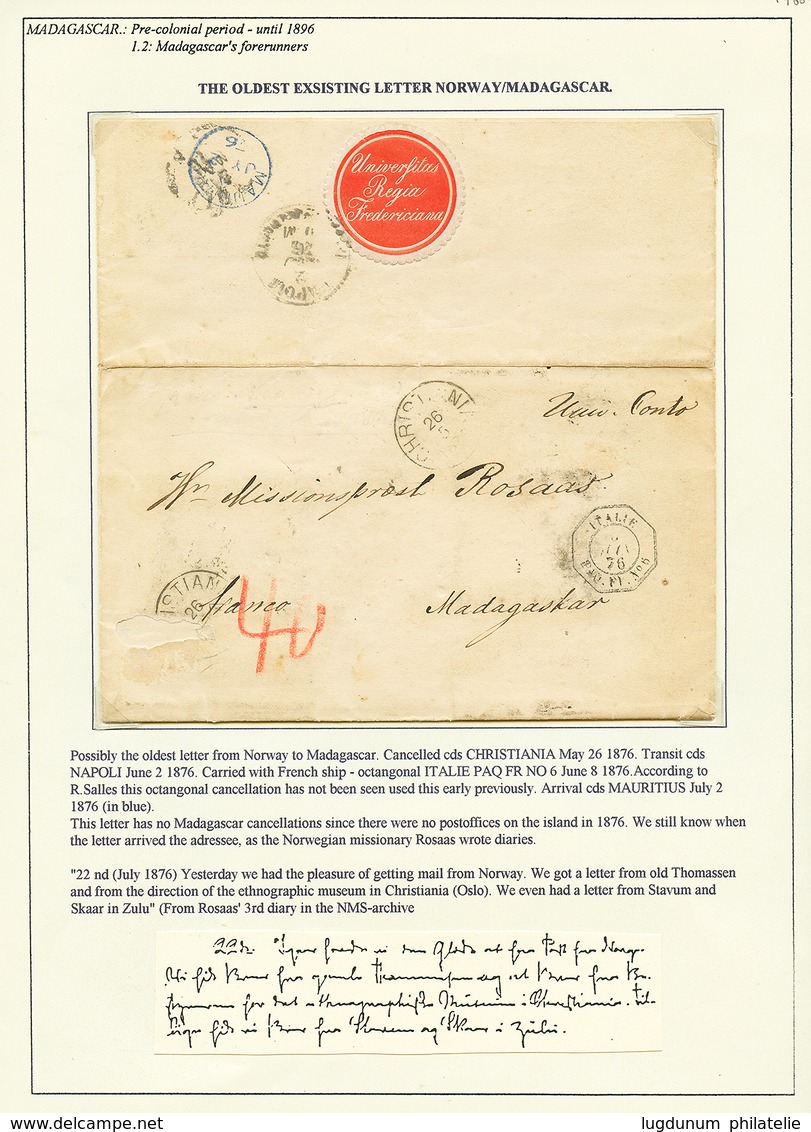 MADAGASCAR.: Pre-colonial period - until 1896
1.2: Madagascar's forerunners
THE OLDEST EXSISTING LETTER NORWAY/MADAGASCAR.
Universitas
Regia
Fredericiana
CHRISTIANIA
26
Univ. Conto
Hr Missionspræst Rosaas
ITALIE
76
PAQ. FR. No 6
STIAN
26
franco
40
Madagaskar
Possibly the oldest letter from Norway to Madagascar. Cancelled cds CHRISTIANIA May 26 1876. Transit cds
NAPOLI June 2 1876. Carried with French ship - octangonal ITALIE PAQ FR NO 6 June 8 1876.According to
R.Salles this octangonal cancellation has not been seen used this early previously. Arrival cds MAURITIUS July 2
1876 (in blue).
This letter has no Madagascar cancellations since there were no postoffices on the island in 1876. We still know when
the letter arrived the adressee, as the Norwegian missionary Rosaas wrote diaries.
"22 nd (July 1876) Yesterday we had the pleasure of getting mail from Norway. We got a letter from old Thomassen
and from the direction of the ethnographic museum in Christiania (Oslo). We even had a letter from Stavum and
Skaar in Zulu" (From Rosaas' 3rd diary in the NMS-archive
www.delcampe.net
lugdunum philatelie